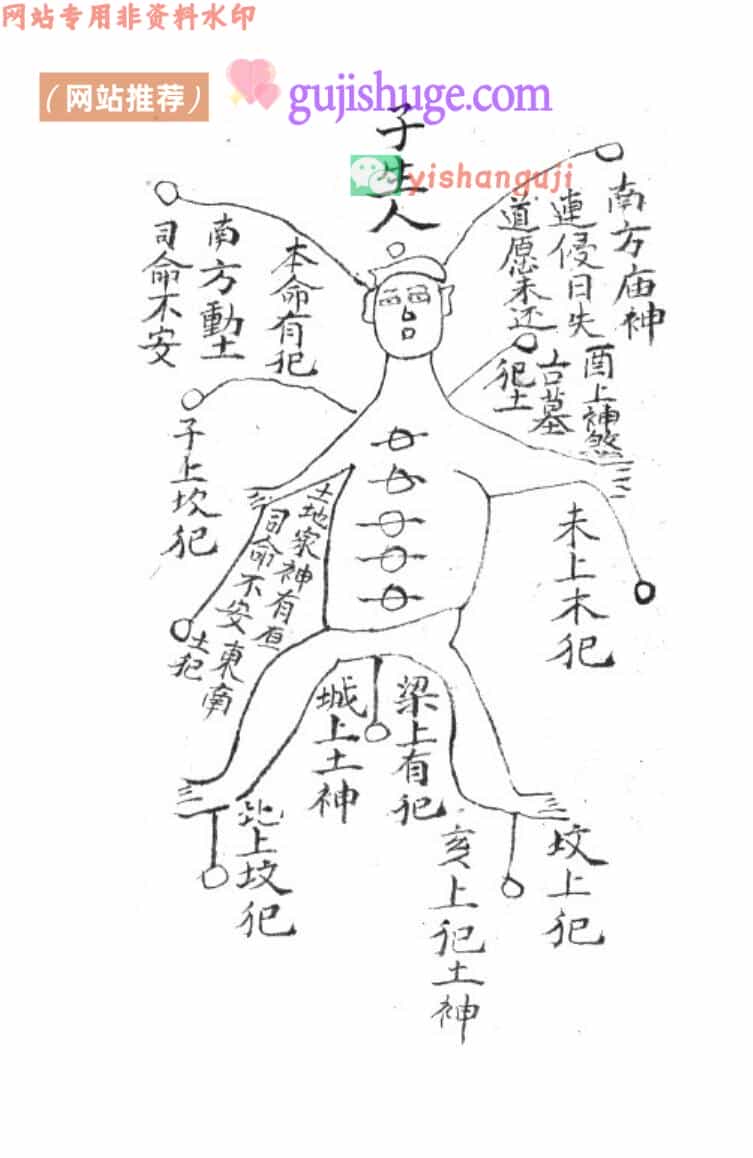 网站专用非资料水印
（网站推荐）
gujishuge.com
yishanguji
子生人
南方庙神
連侵日失
道愿未还
酉上神煞
古墓
犯土
本命有犯
南方動土
司命不安
子上坎犯
未上木犯
土地家神有
司命不安東南
土犯
梁上有犯
城上土神
坟上犯
亥上犯土神
北上坟犯